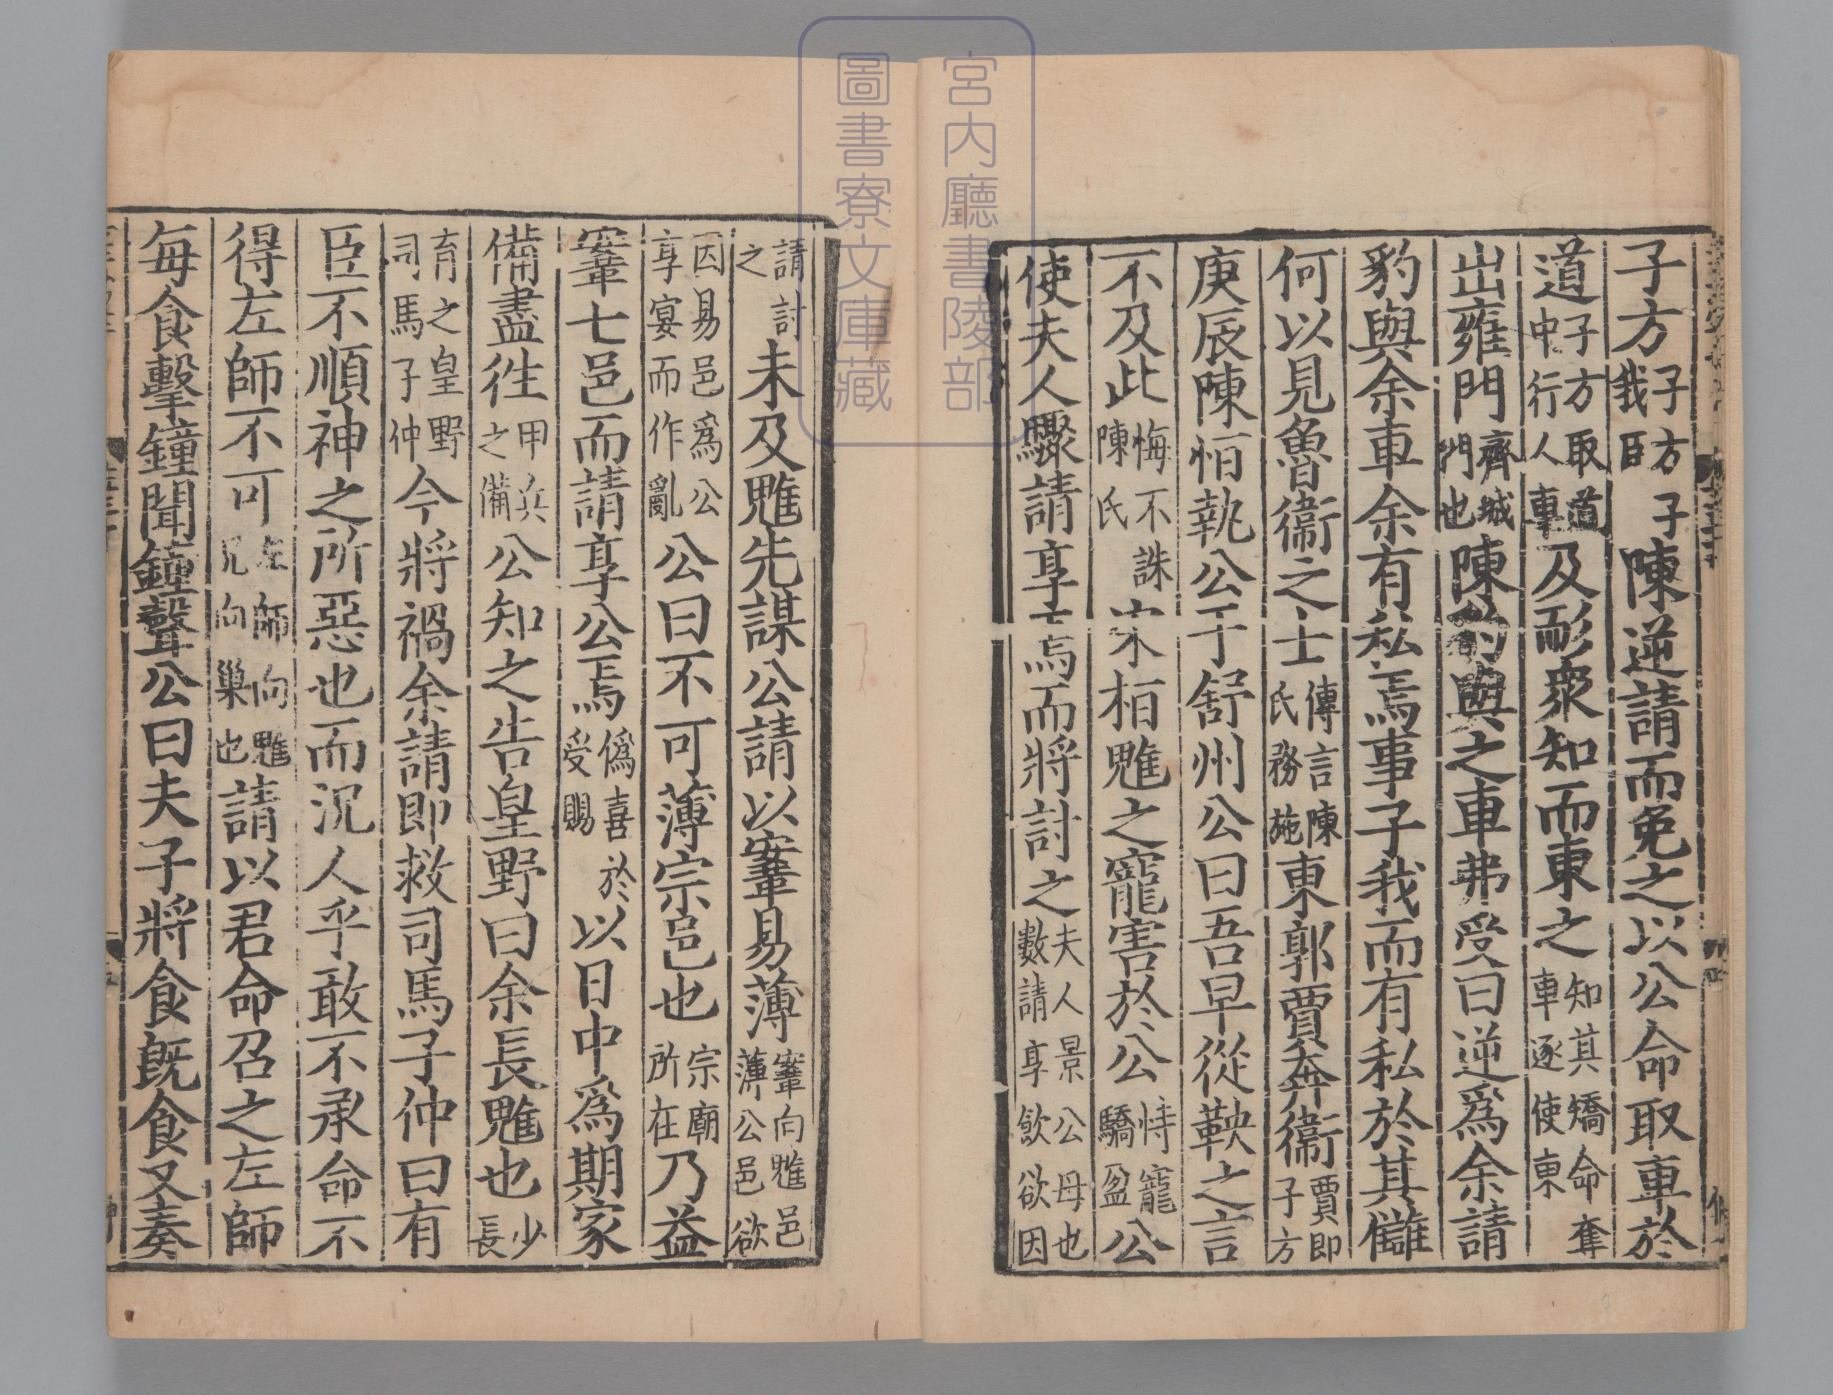 子方子方子我臣陳逆請而免之以公命取車於
道子方取道中行人車及耏眾知而東之知其矯命奪車逐使東
出雍門齊城門也陳豹與之車弗受曰逆為余請
豹與余車余有私焉事子我而有私於其讎
何以見魯衛之士傳言陳氏務施東郭賈奔衛賈即子方
庚辰陳恒執公于舒州公曰吾早從鞅之言
不及此悔不誅陳氏宋桓魋之寵害於公恃寵驕盈公
使夫人驟請享焉而將討之夫人景公母也數請享飲欲因
請討之未及魋先謀公請以鞌易薄鞌向魋邑薄公邑欲
因易邑為公享宴而作亂公曰不可薄宗邑也宗廟所在乃益
鞌七邑而請享公焉偽喜於受賜以日中為期家
備盡徃甲兵之備公知之告皇野曰余長魋也少長
育之皇野司馬子仲今將禍余請即救司馬子仲曰有
臣不順神之所惡也而況人乎敢不承命不
得左師不可左師向魋兄向巢也請以君命召之左師
每食擊鐘聞鐘聲公曰夫子將食既食又奏
宮內廳書陵部
圖書寮文庫藏